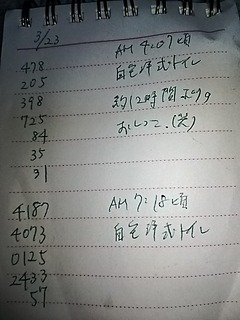 3/23
478 AM 4:07頃
205 自宅洋式トイレ
398 約12時間ぶり。
725 おしっこ。(笑)
84
35
31
4187 AM 7:18頃
4073 自宅洋式トイレ
0125
2433
57